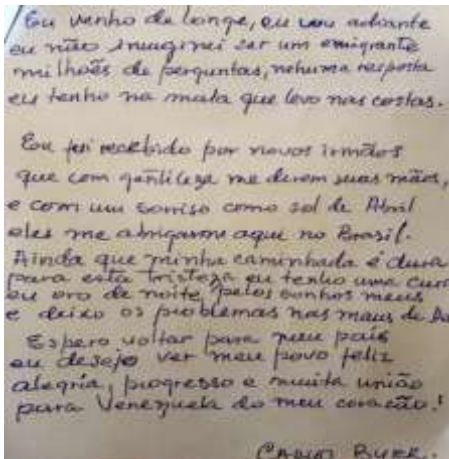 Eu venho de longe, eu vou adiante
eu não imaginei ser um emigrante
milhões de perguntas, nehuma resposta
eu tenho na mala que levo nas costas.
Eu fui recebido por novos irmãos
que com gentileza me derem suas mãos,
e com um sorriso como sol de Abril
eles me abrigarom aqui no Brasil.
Ainda que minha caminhada é dura
para esta tristeza eu tenho uma cura
eu oro de noite, pelos sonhos meus
e deixo os problemas nas maus de
Espero voltar para meu país
eu desejo ver meu povo feliz
alegria, progresso e muita união
para Venezuela do meu coração!